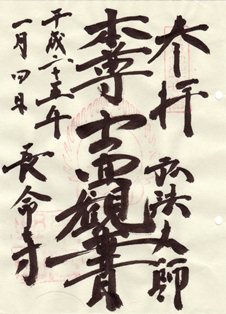 奉拝 弘法大師
本尊 十一面観音
平成二十五年
一月四日 長命寺